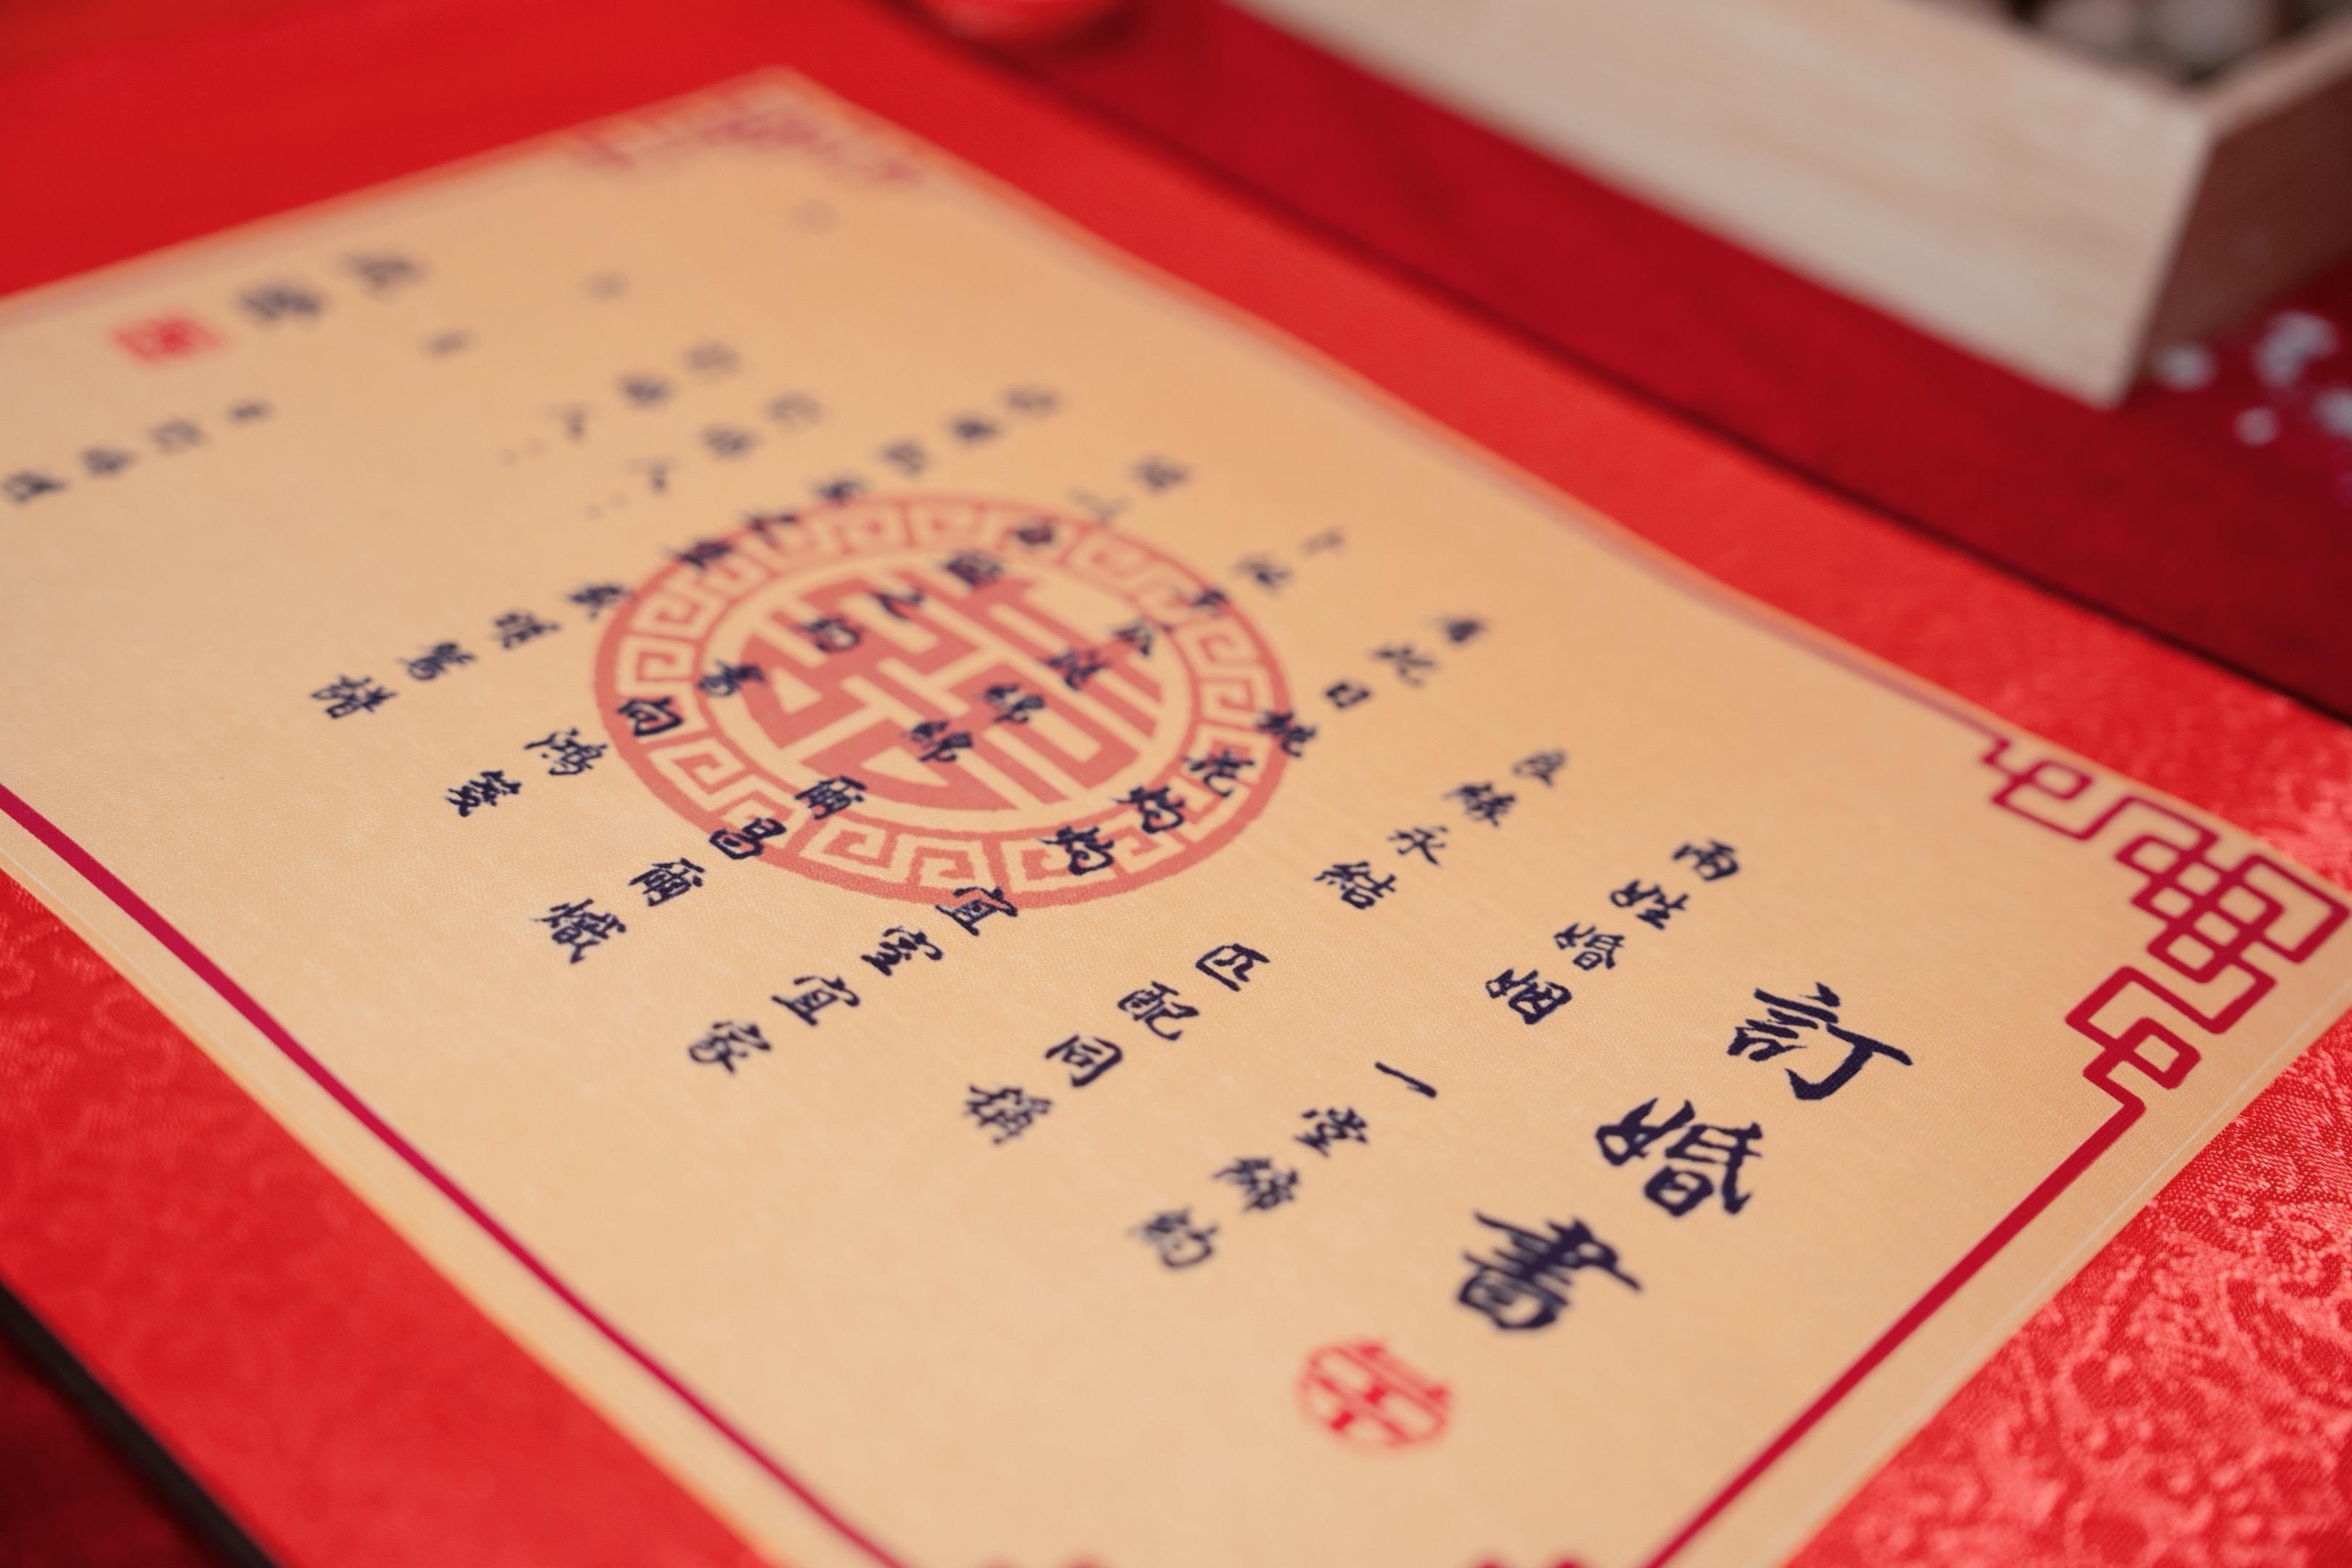 訂婚書
兩姓婚姻 一堂締約
良緣永結 匹配同稱
看此日桃花灼灼 宜室宜家
卜他年瓜瓞綿綿 爾昌爾熾
謹以白頭之約 書向鴻箋
好將紅葉之盟 載明鴛譜
訂婚人：
訂婚人：